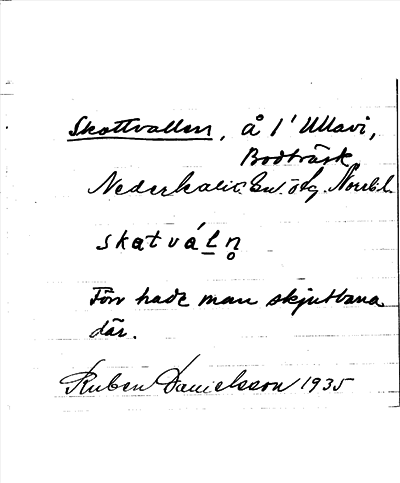 Skottvallen, å 1' Ullavi,
Bodträsk
Nederkalix sn. ög. Norrb. l.
skatvá[l̲ n̥
Förr hade man skjutbana
där.
Ruben Danielsson 1935